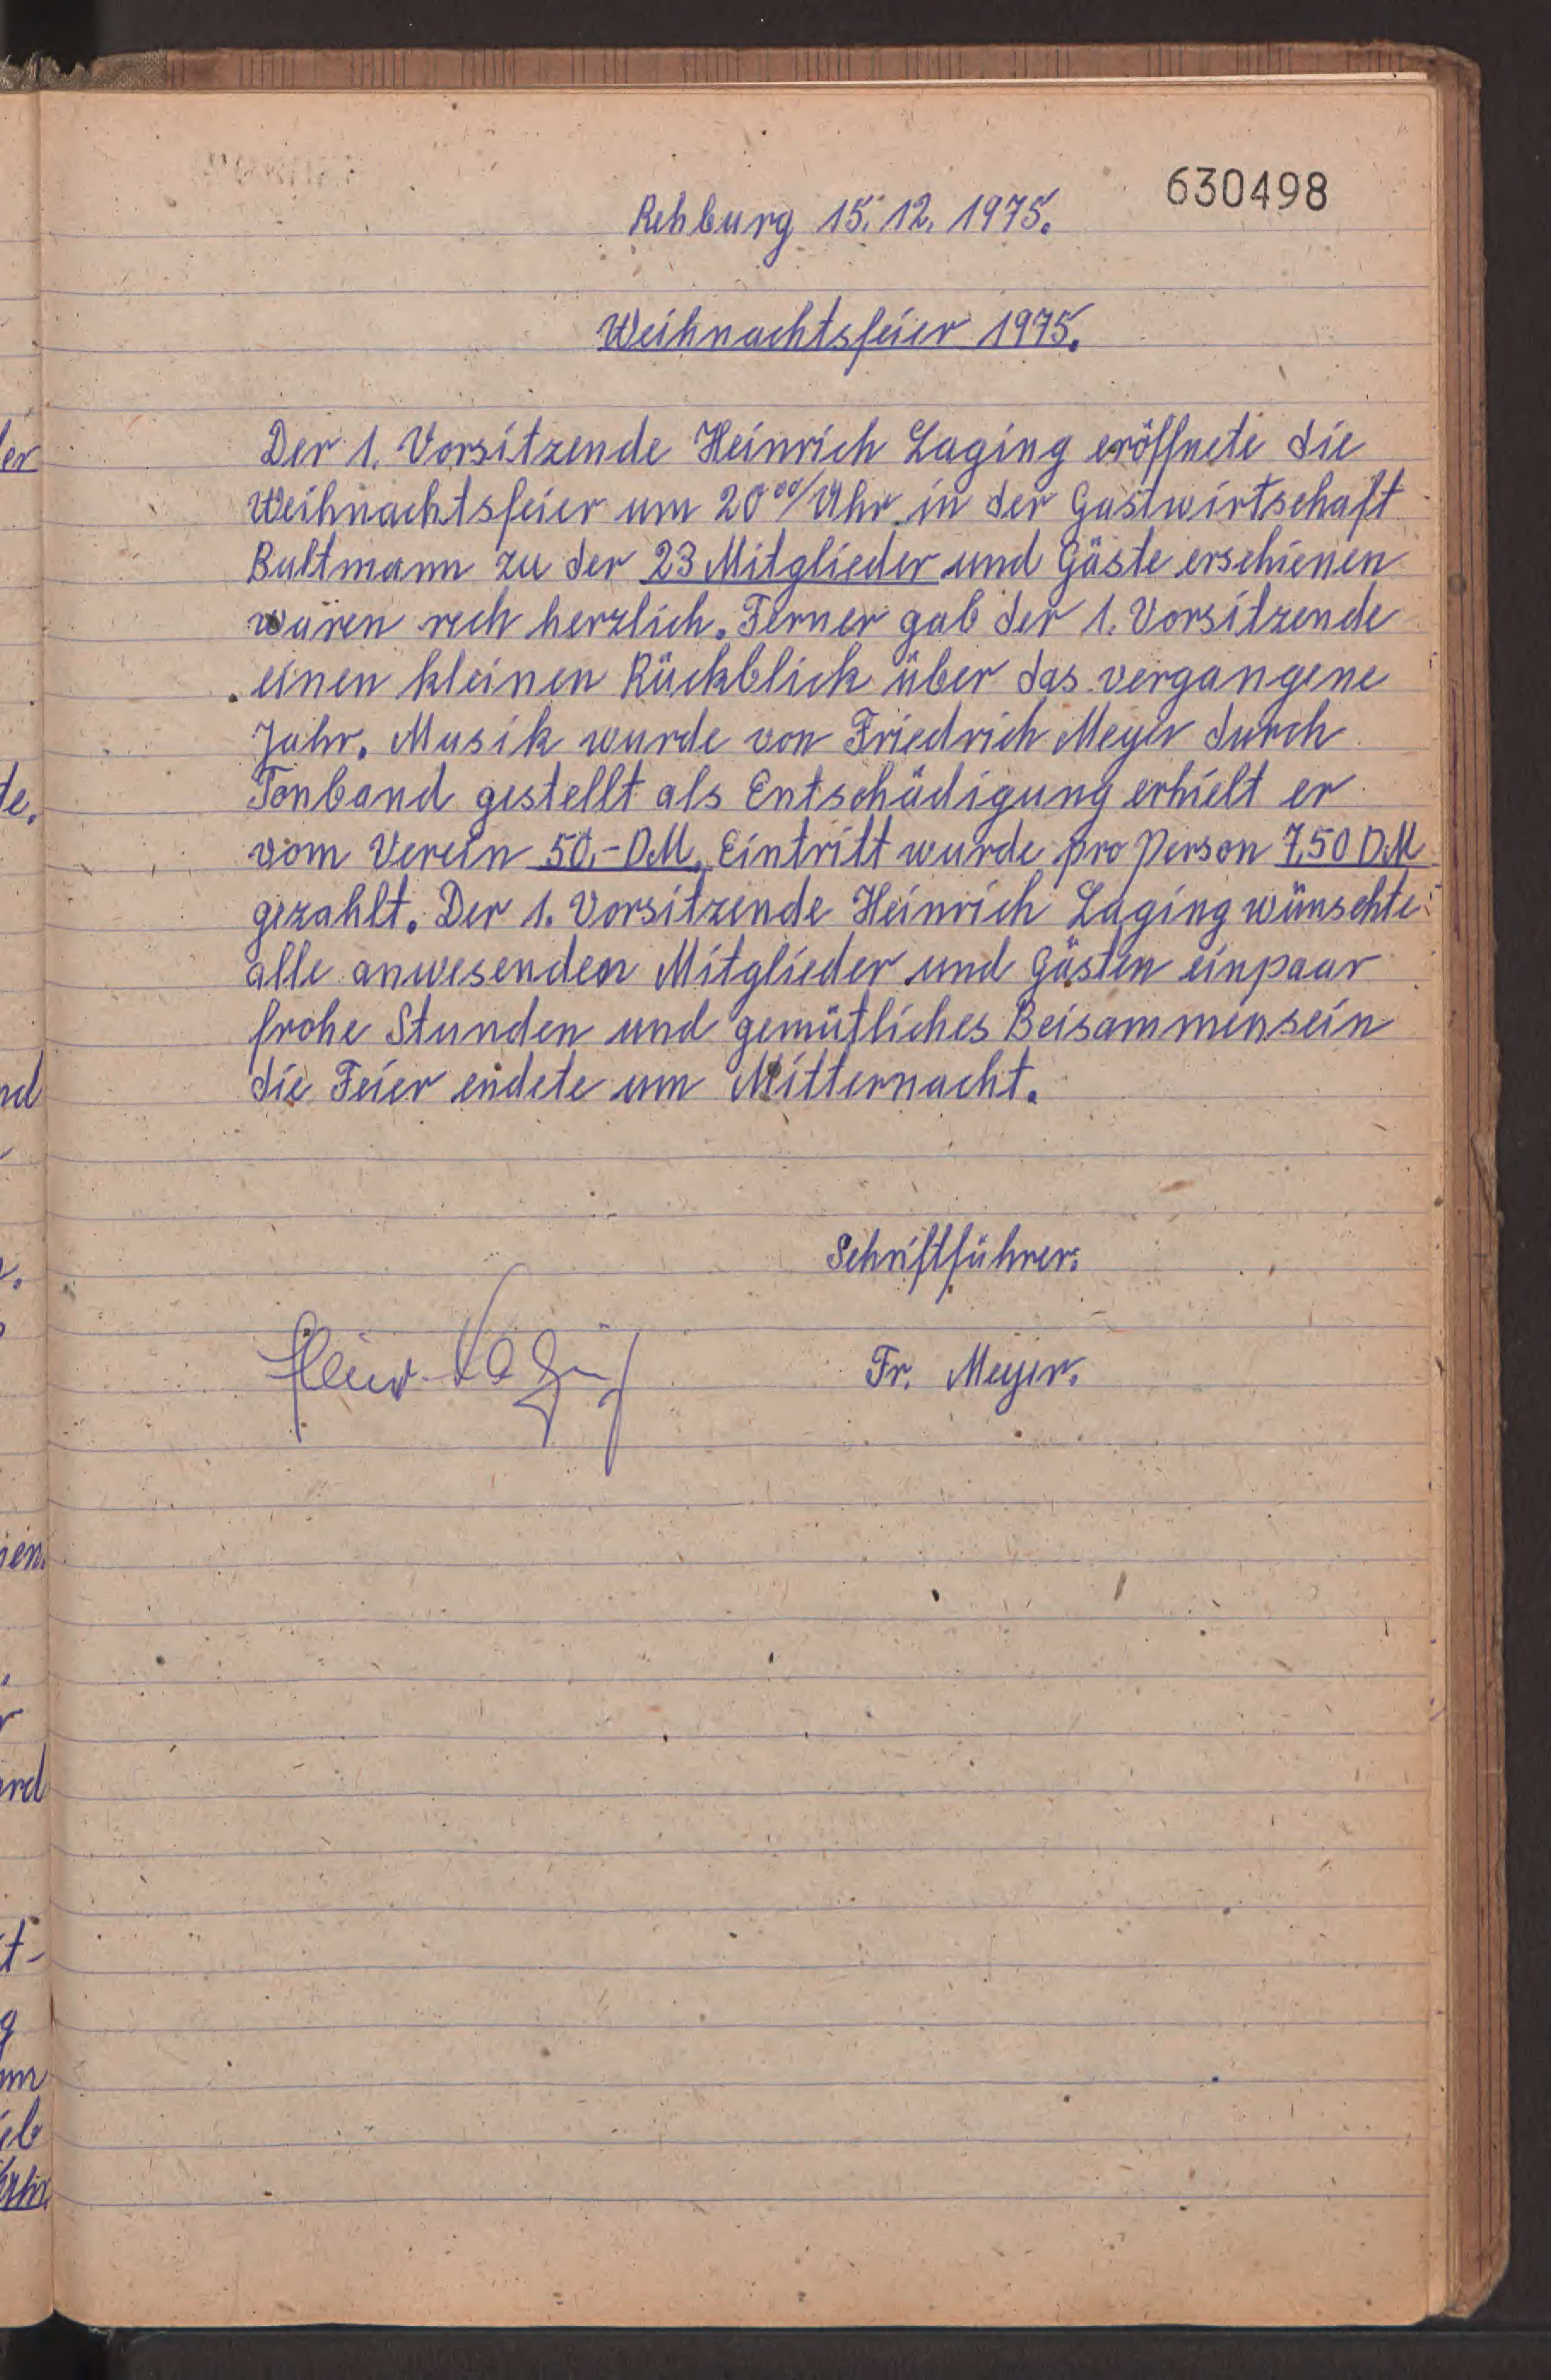 630498
Rehburg 15.12.1975.
Weihnachtsfeier 1975.
Der 1. Vorsitzende Heinrich Laging eröffnete die
Weihnachtsfeier um 20⁰⁰/Uhr in der Gastwirtschaft
Bultmann zu der 23 Mitglieder und Gäste erschienen
waren rech herzlich. Ferner gab der 1. Vorsitzende
einen kleinen Rückblick über das vergangene
Jahr. Musik wurde von Friedrich Meyer durch
Tonband gestellt als Entschädigung erhielt er
vom Verein 50,-DM. Eintritt wurde pro Person 7,50 DM
gezahlt. Der 1. Vorsitzende Heinrich Laging wünschte
alle anwesenden Mitglieder und Gästen einpaar
frohe Stunden und gemütliches Beisammensein
die Feier endete um Mitternacht.
Schriftführer.
Heinr. Laging
Fr. Meyer.